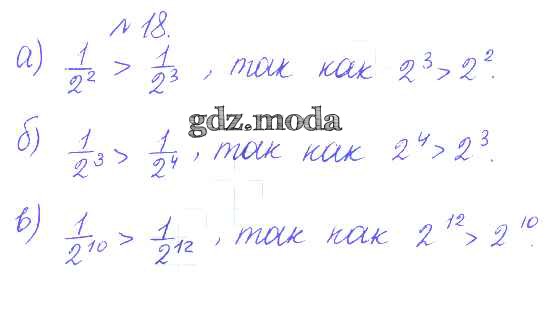 № 18.
а) 1/2² > 1/2³, так как 2³ > 2².
gdz.moda
б) 1/2³ > 1/2⁴, так как 2⁴ > 2³.
в) 1/2¹⁰ > 1/2¹², так как 2¹² > 2¹⁰.